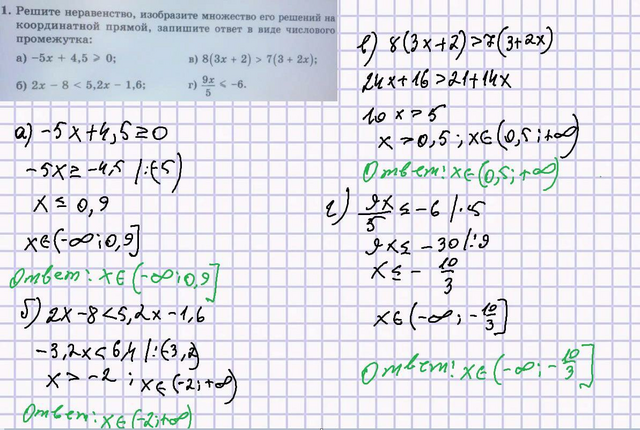 1. Решите неравенство, изобразите множество его решений на
координатной прямой, запишите ответ в виде числового
промежутка:
а) −5x + 4,5 ⩾ 0;
в) 8(3x + 2) > 7(3 + 2x);
б) 2x − 8 < 5,2x − 1,6;
г) 9x/5 ⩽ −6.
а) -5x+4,5≥0
-5x≥-4,5 /:(-5)
x≤ 0,9
x∈(-∞;0,9]
Ответ: x∈(-∞;0,9]
б) 2x-8<5,2x-1,6
-3,2x<6,4 /:(-3,2)
x>-2 ; x∈(-2;+∞)
Ответ: x∈(-2;+∞)
в) 8(3x+2)>7(3+2x)
24x+16>21+14x
10x>5
x>0,5 ; x∈(0,5;+∞)
Ответ: x∈(0,5;+∞)
г) 9x/5 ≤-6 /·5
9x≤ -30 /:9
x≤ - 10/3
x∈(-∞; -10/3]
Ответ: x∈(-∞; -10/3]